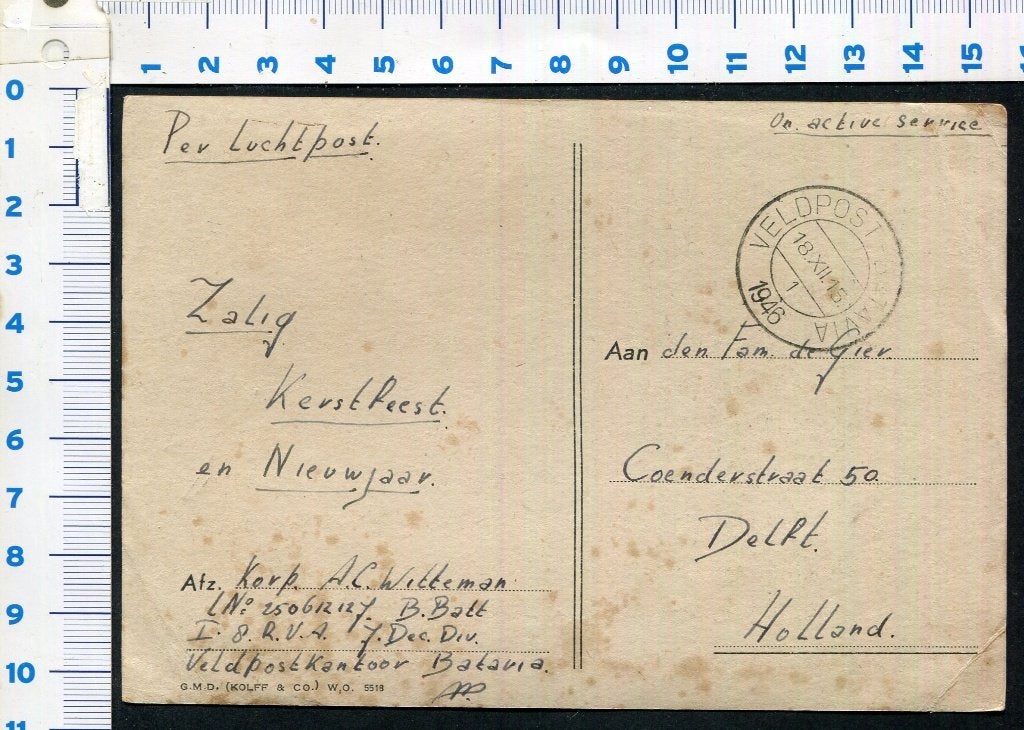 1 2 3 4 5 6 7 8 9 10 11 12 13 14 15 16
0
1
2
3
4
5
6
7
8
9
10
11
Per Luchtpost.
Zalig
Kerstfeest.
en Nieuwjaar.
Afz. Korp. A.C. Witteman
LNo: 250612127 B.Batt
I. 8. R.V.A. 7. Dec. Div.
Veldpostkantoor Batavia.
G.M.D. (KOLFF & CO.) W.O. 5518
On active service
VELDPOST BATAVIA
18.XII.15
1
1946
Aan den Fam. de Gier.
Coenderstraat 50.
Delft.
Holland.